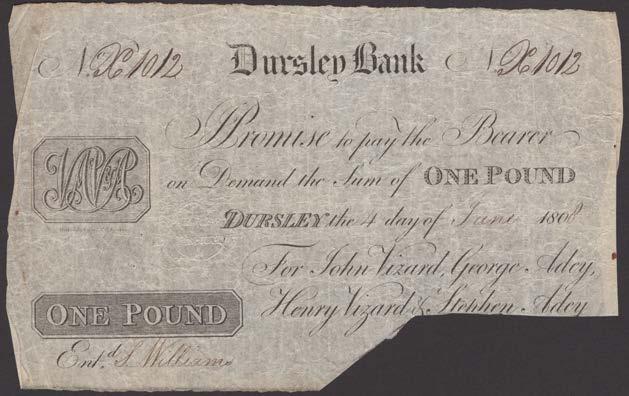 No. X1012 Dursley Bank No. X1012
I Promise to pay the Bearer
on Demand the Sum of ONE POUND
DURSLEY the 4 day of June 1808
For John Vizard, George Adey,
Henry Vizard & Stephen Adey
ONE POUND
Entd. S. Williams